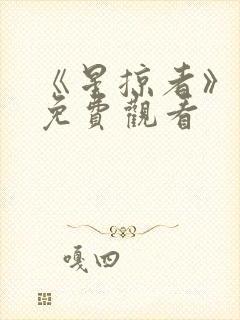 《星掠者》
免費觀看
嘎四